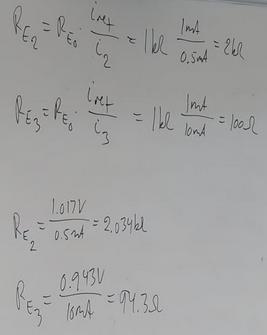 R_E2 = R_E0 · i_ref / i_2 = 1kΩ 1mA / 0.5mA = 2kΩ
R_E3 = R_E0 · i_ref / i_3 = 1kΩ 1mA / 10mA = 100Ω
R_E2 = 1.017V / 0.5mA = 2,034kΩ
R_E3 = 0.943V / 10mA = 94.3Ω